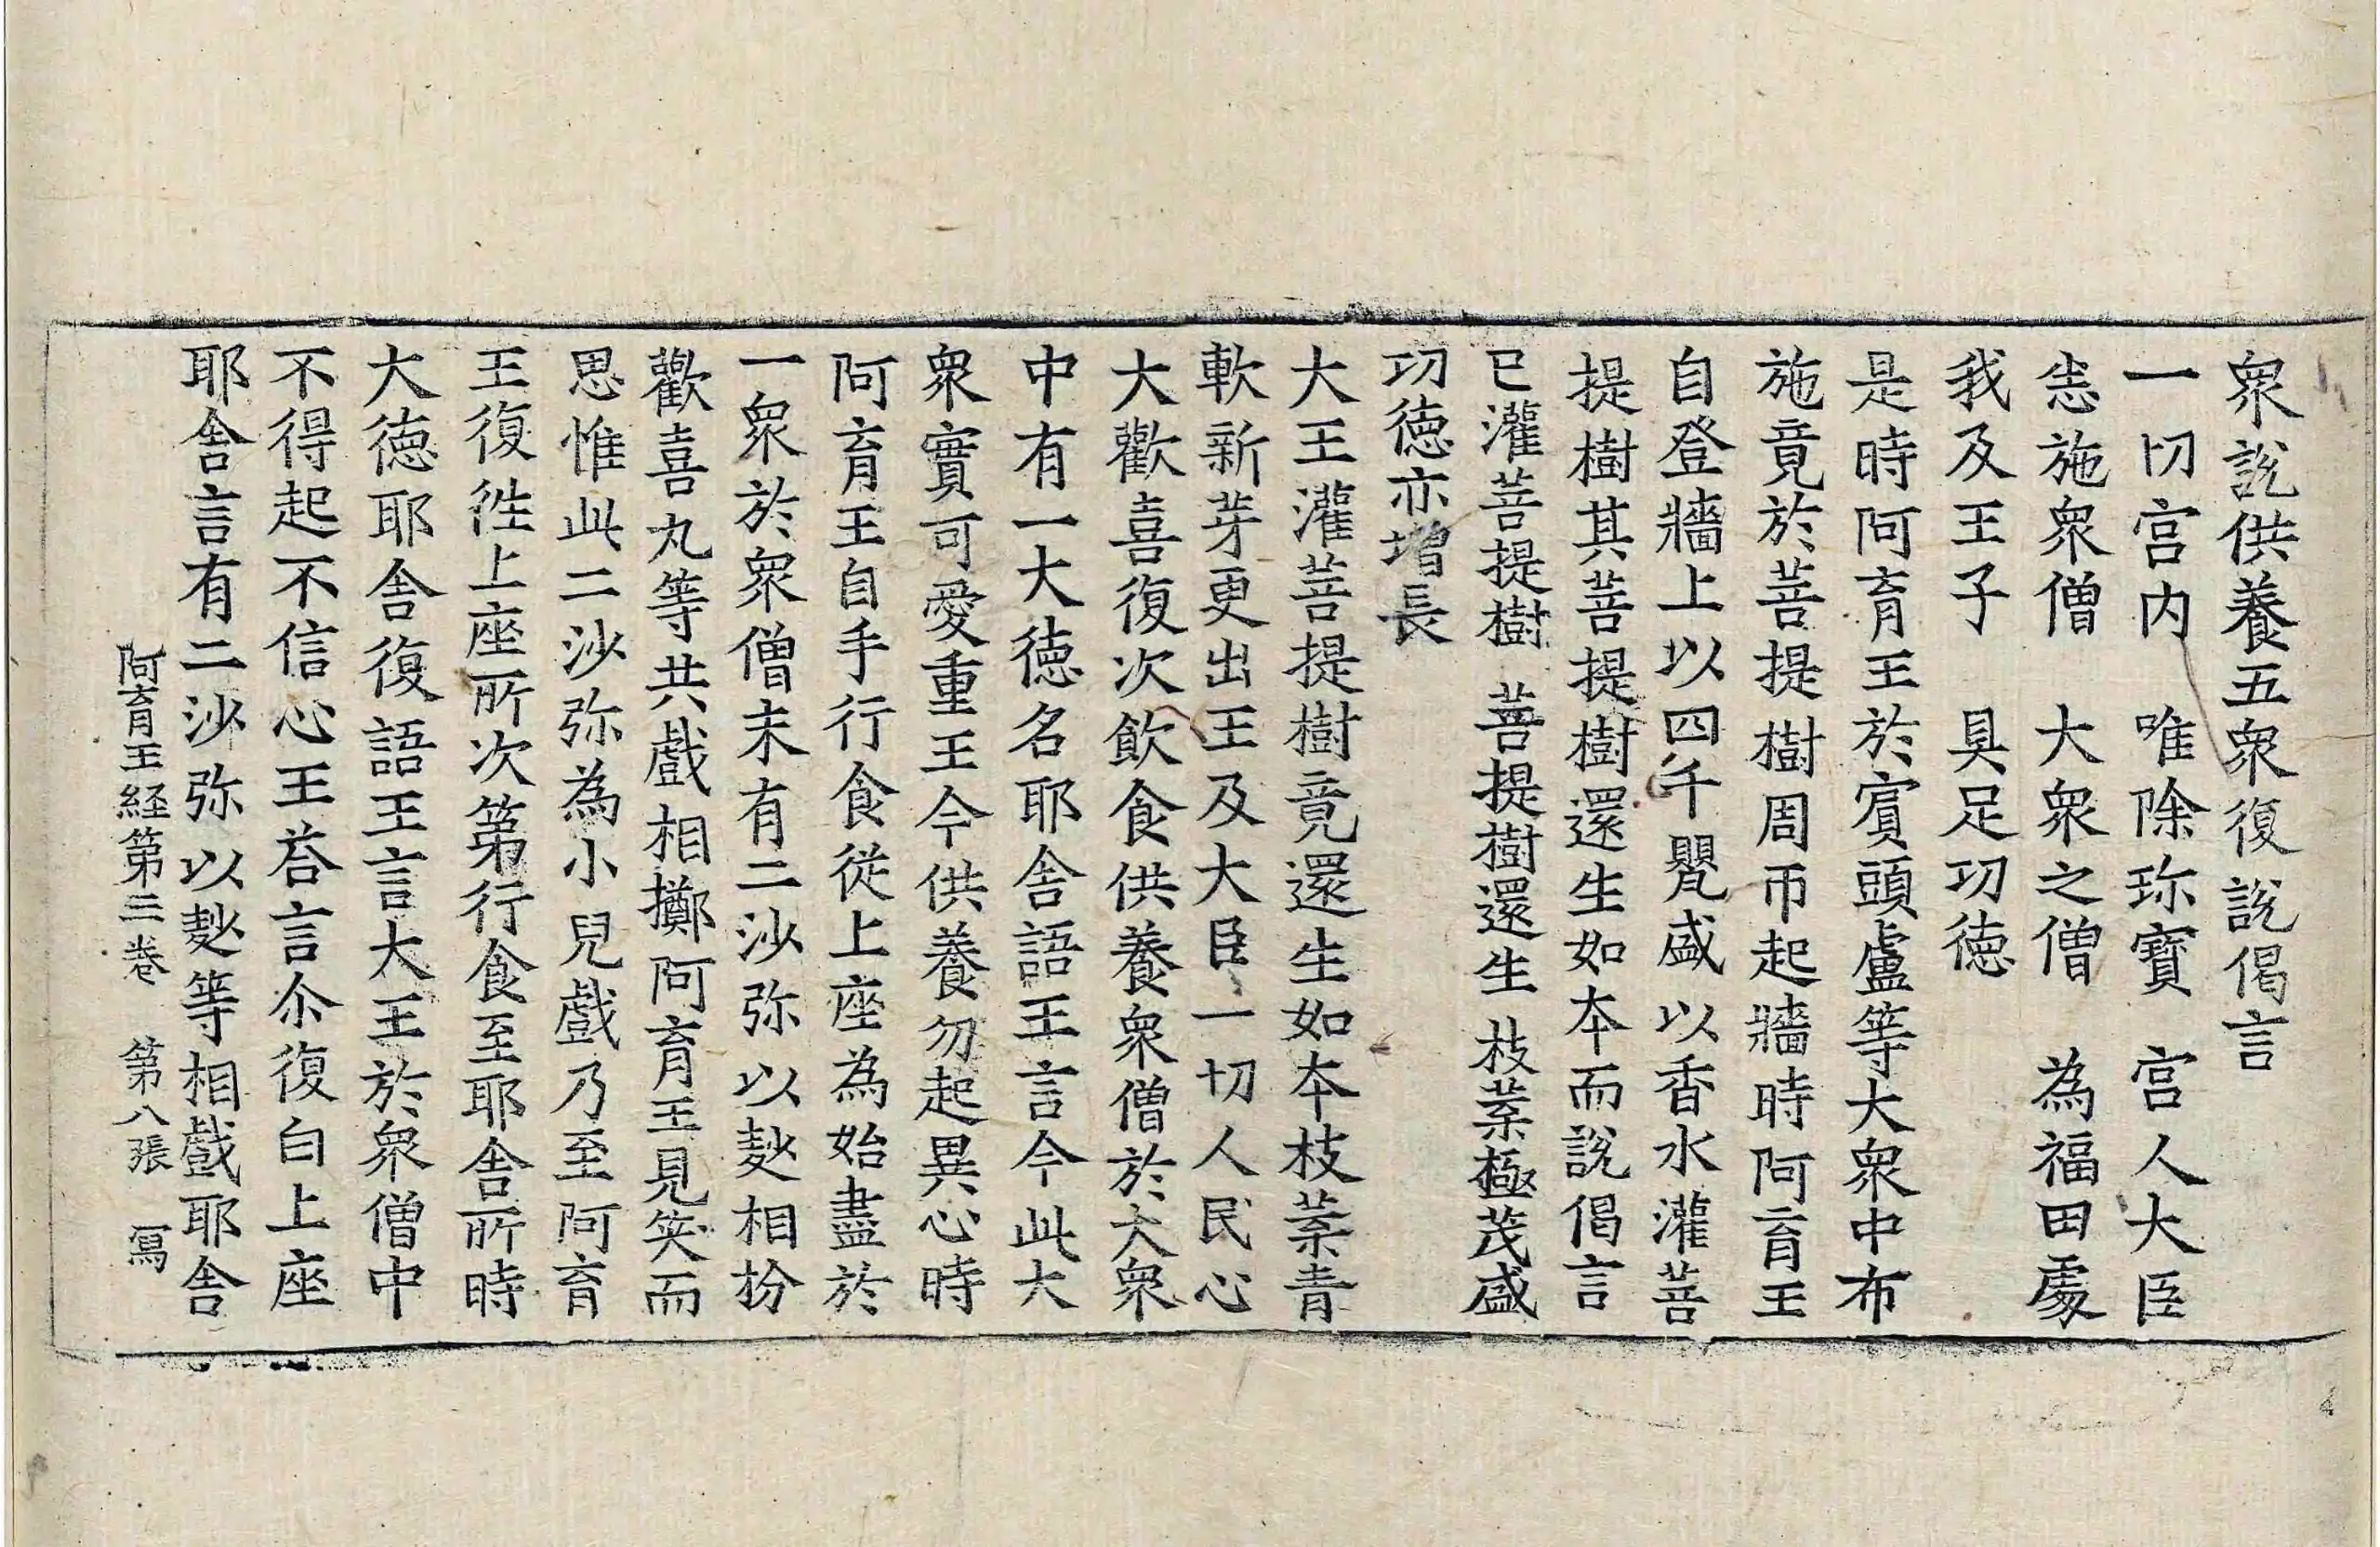 衆說供養五衆復說偈言
一切宫内　唯除珎寶　宫人大臣
恙施衆僧　大衆之僧　為福田處
我及王子　具足功徳
是時阿育王於賔頭盧等大衆中布
施竟於菩提樹周帀起牆時阿育王
自登牆上以四千甖盛以香水灌菩
提樹其菩提樹還生如本而說偈言
已灌菩提樹　菩提樹還生　枝葉極茂盛
功徳亦增長
大王灌菩提樹竟還生如本枝葉青
軟新芽更出王及大臣一切人民心
大歡喜復次飲食供養衆僧於大衆
中有一大徳名耶舍語王言今此大
衆實可愛重王今供養勿起異心時
阿育王自手行食從上座為始盡於
一衆於衆僧末有二沙弥以麨相扮
歡喜丸等共戲相擲阿育王見笑而
思惟此二沙弥為小兒戲乃至阿育
王復徃上座所次第行食至耶舍所時
大徳耶舍復語王言大王於衆僧中
不得起不信心王荅言尒復白上座
耶舍言有二沙弥以麨等相戲耶舍
阿育王経第三卷　第八張　冩
4